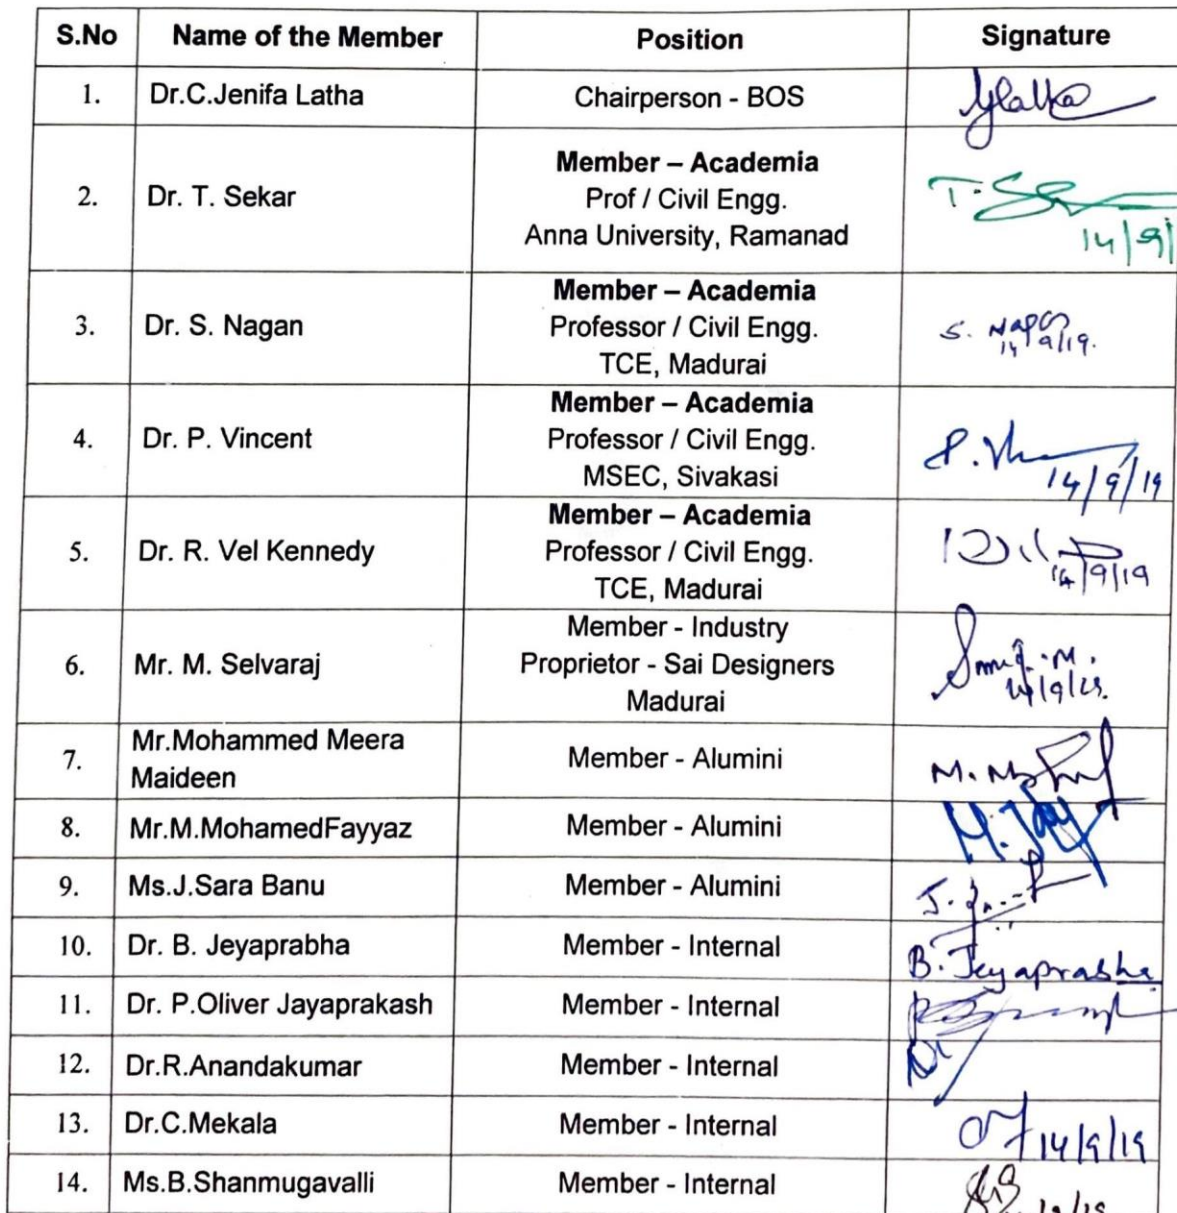 S.No Name of the Member Position Signature
1. Dr.C.Jenifa Latha Chairperson - BOS
2. Dr. T. Sekar
Member – Academia
Prof / Civil Engg.
Anna University, Ramanad
T.
14/9/
3. Dr. S. Nagan
Member – Academia
Professor / Civil Engg.
TCE, Madurai
S.
14/9/19.
4. Dr. P. Vincent
Member – Academia
Professor / Civil Engg.
MSEC, Sivakasi
P.
14/9/19
5. Dr. R. Vel Kennedy
Member – Academia
Professor / Civil Engg.
TCE, Madurai
14/9/19
6. Mr. M. Selvaraj
Member - Industry
Proprietor - Sai Designers
Madurai
7. Mr.Mohammed Meera
Maideen
Member - Alumini
8. Mr.M.MohamedFayyaz Member - Alumini
9. Ms.J.Sara Banu Member - Alumini
10. Dr. B. Jeyaprabha Member - Internal B. Jeyaprabha
11. Dr. P.Oliver Jayaprakash Member - Internal
12. Dr.R.Anandakumar Member - Internal
13. Dr.C.Mekala Member - Internal 14/9/19
14. Ms.B.Shanmugavalli Member - Internal